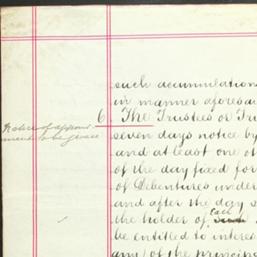 such accumulation
in manner aforesai
6. The Trustees or Tru
Notice of appoint
ment to be given
seven days notice by
and at least one of
of the day fixed for
of Debentures under
and after the day s
the holder of each
be entitled to interes
any) of the principa